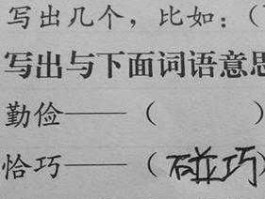 写出几个，比如：（
写出与下面词语意思
勤俭——（ ）
恰巧——（碰巧）